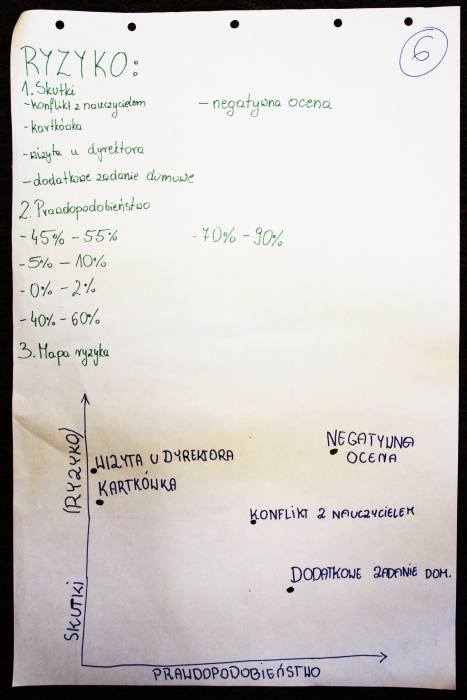 6
RYZYKO:
1. Skutki
-konflikt z nauczycielem
-negatywna ocena
-kartkówka
-wizyta u dyrektora
-dodatkowe zadanie domowe
2. Prawdopodobieństwo
-45% - 55%
-70% - 90%
-5% - 10%
-0% - 2%
-40% - 60%
3. Mapa ryzyka
SKUTKI (RYZYKO)
WIZYTA U DYREKTORA
KARTKÓWKA
NEGATYWNA
OCENA
KONFLIKT Z NAUCZYCIELEM
DODATKOWE ZADANIE DOM.
PRAWDOPODOBIEŃSTWO